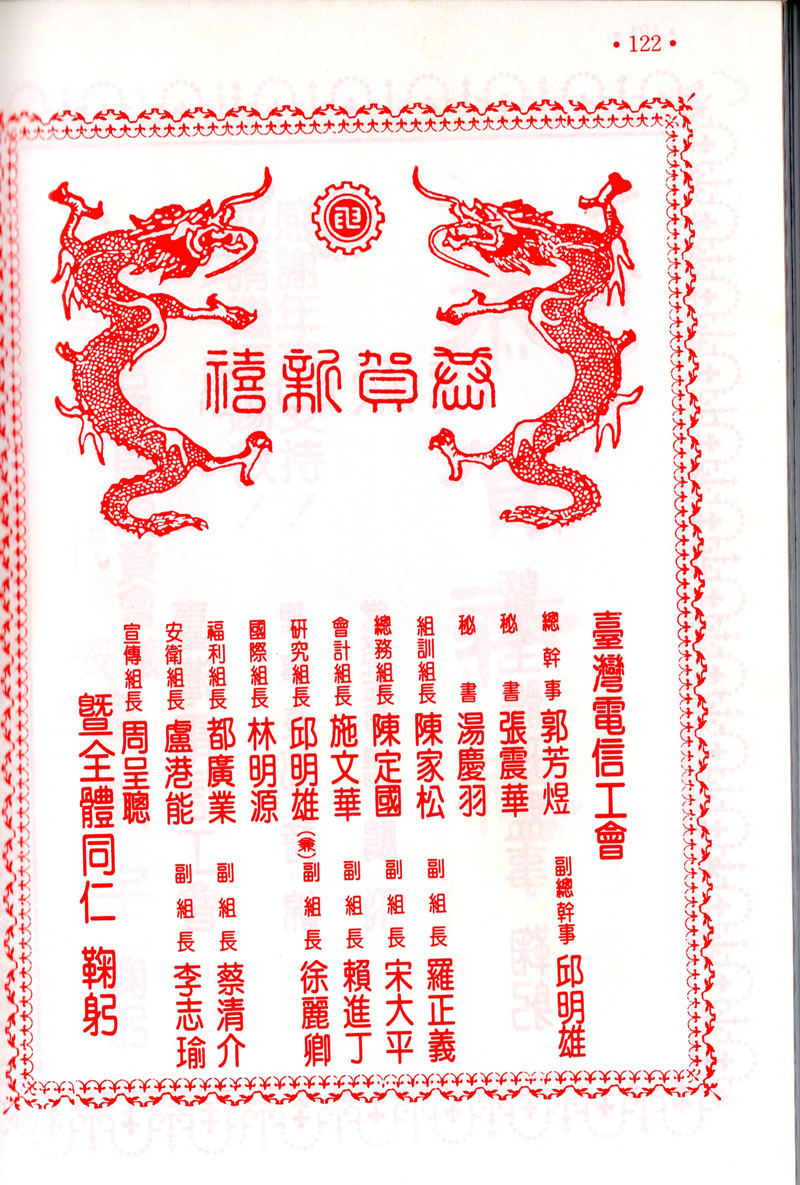 • 122 •
恭賀新禧
臺灣電信工會
總幹事 郭芳煜 副總幹事 邱明雄
秘書 張震華
秘書 湯慶羽
組訓組長 陳家松 副組長 羅正義
總務組長 陳定國 副組長 宋大平
會計組長 施文華 副組長 賴進丁
研究組長 邱明雄(兼) 副組長 徐麗卿
國際組長 林明源
福利組長 都廣業 副組長 蔡清介
安衛組長 盧港能 副組長 李志瑜
宣傳組長 周呈聰
暨全體同仁 鞠躬